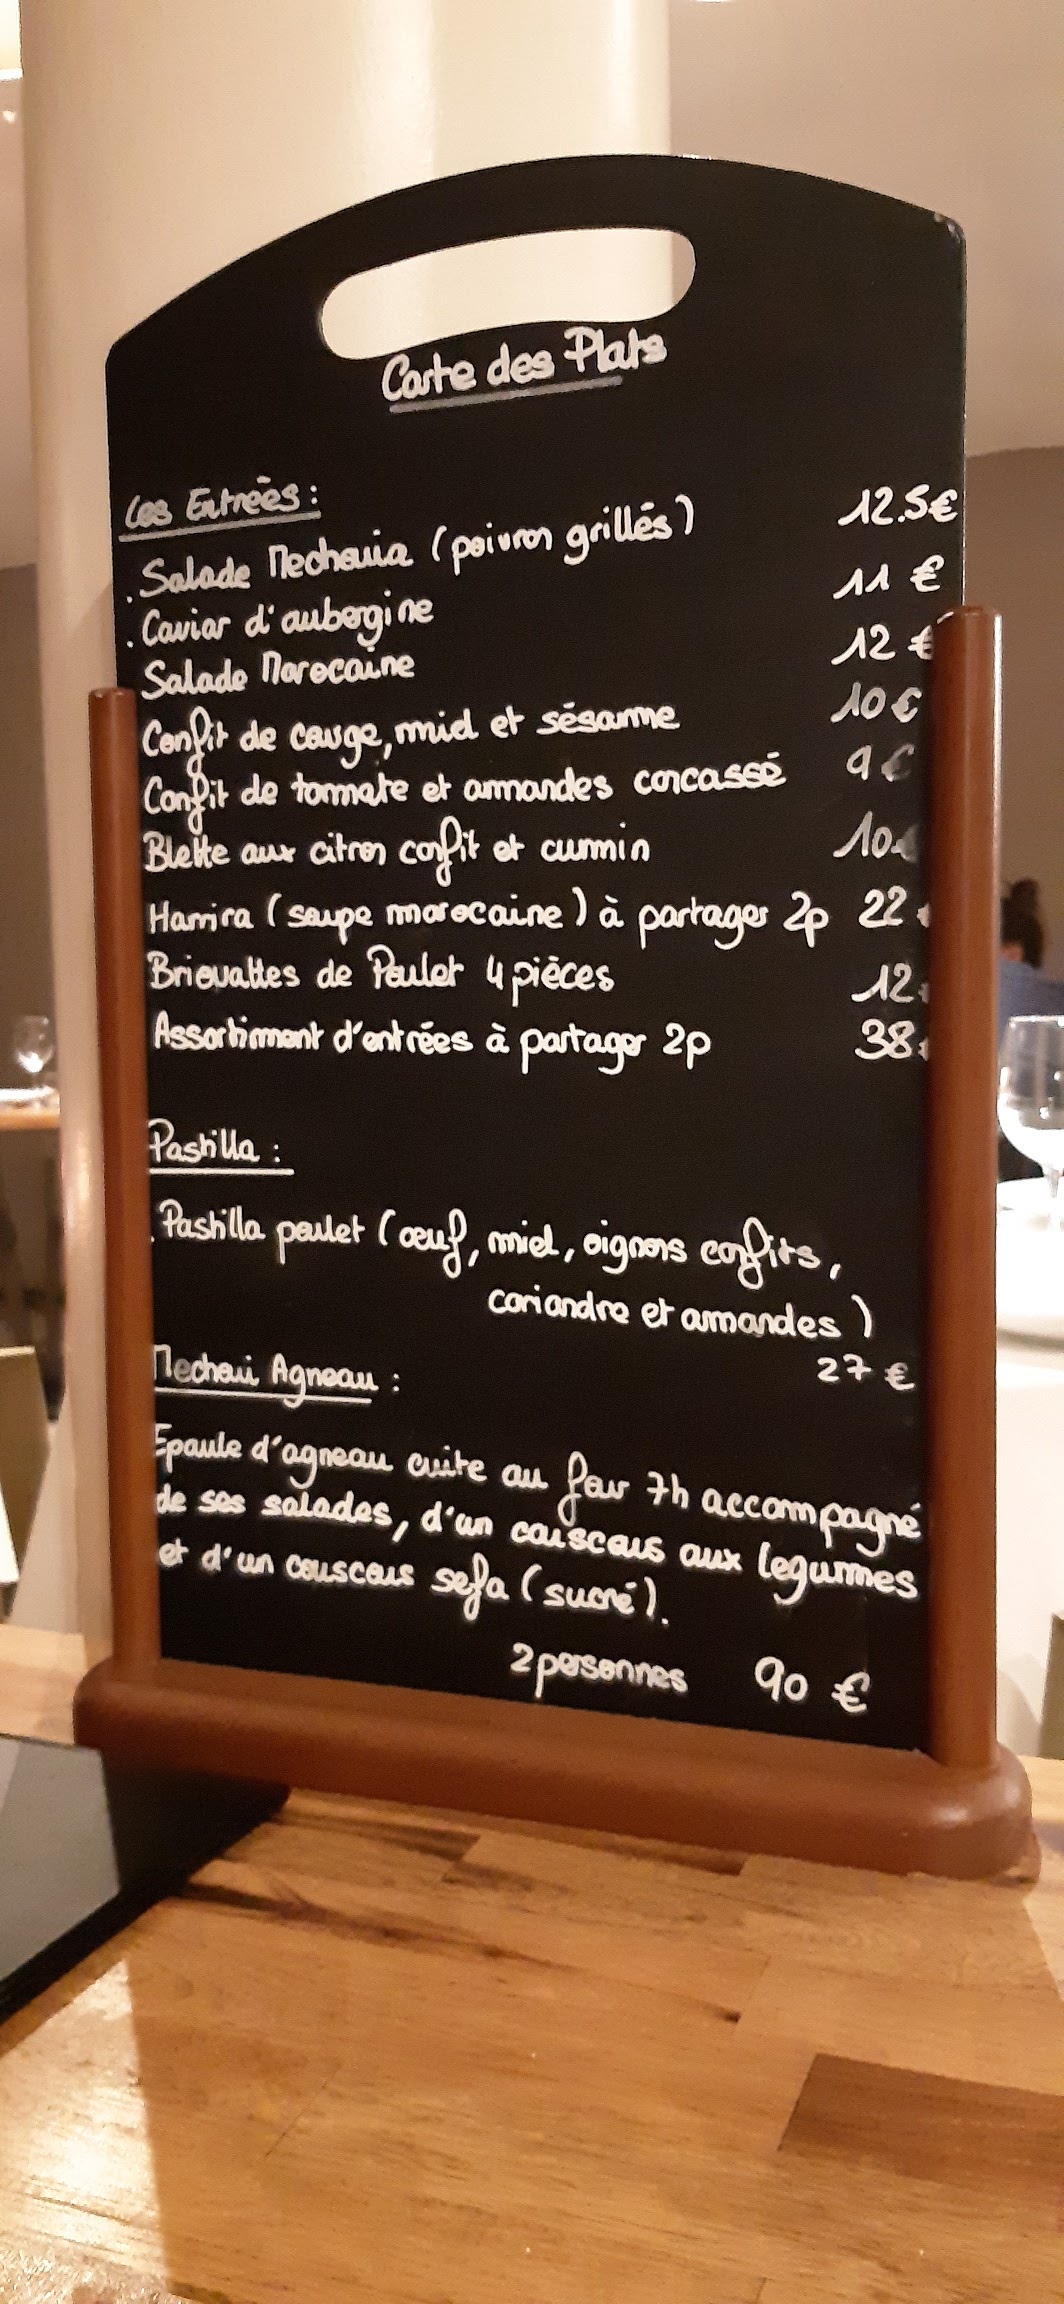 Carte des Plats
Les Entrées :
. Salade Mechouia (poivron grillés) 12.5€
. Caviar d'aubergine 11 €
Salade Marocaine 12 €
Confit de courge, miel et sésame 10 €
Confit de tomate et amandes concassé 9 €
Blette aux citron confit et cumin 10 €
Harira (soupe marocaine) à partager 2p 22 €
Briouattes de Poulet 4 pièces 12 €
Assortiment d'entrées à partager 2p 38 €
Pastilla :
. Pastilla poulet (œuf, miel, oignons confits,
coriandre et amandes)
27 €
Mechoui Agneau :
Epaule d'agneau cuite au four 7h accompagné
de ses salades, d'un couscous aux legumes
et d'un couscous sefa (sucré).
2 personnes 90 €